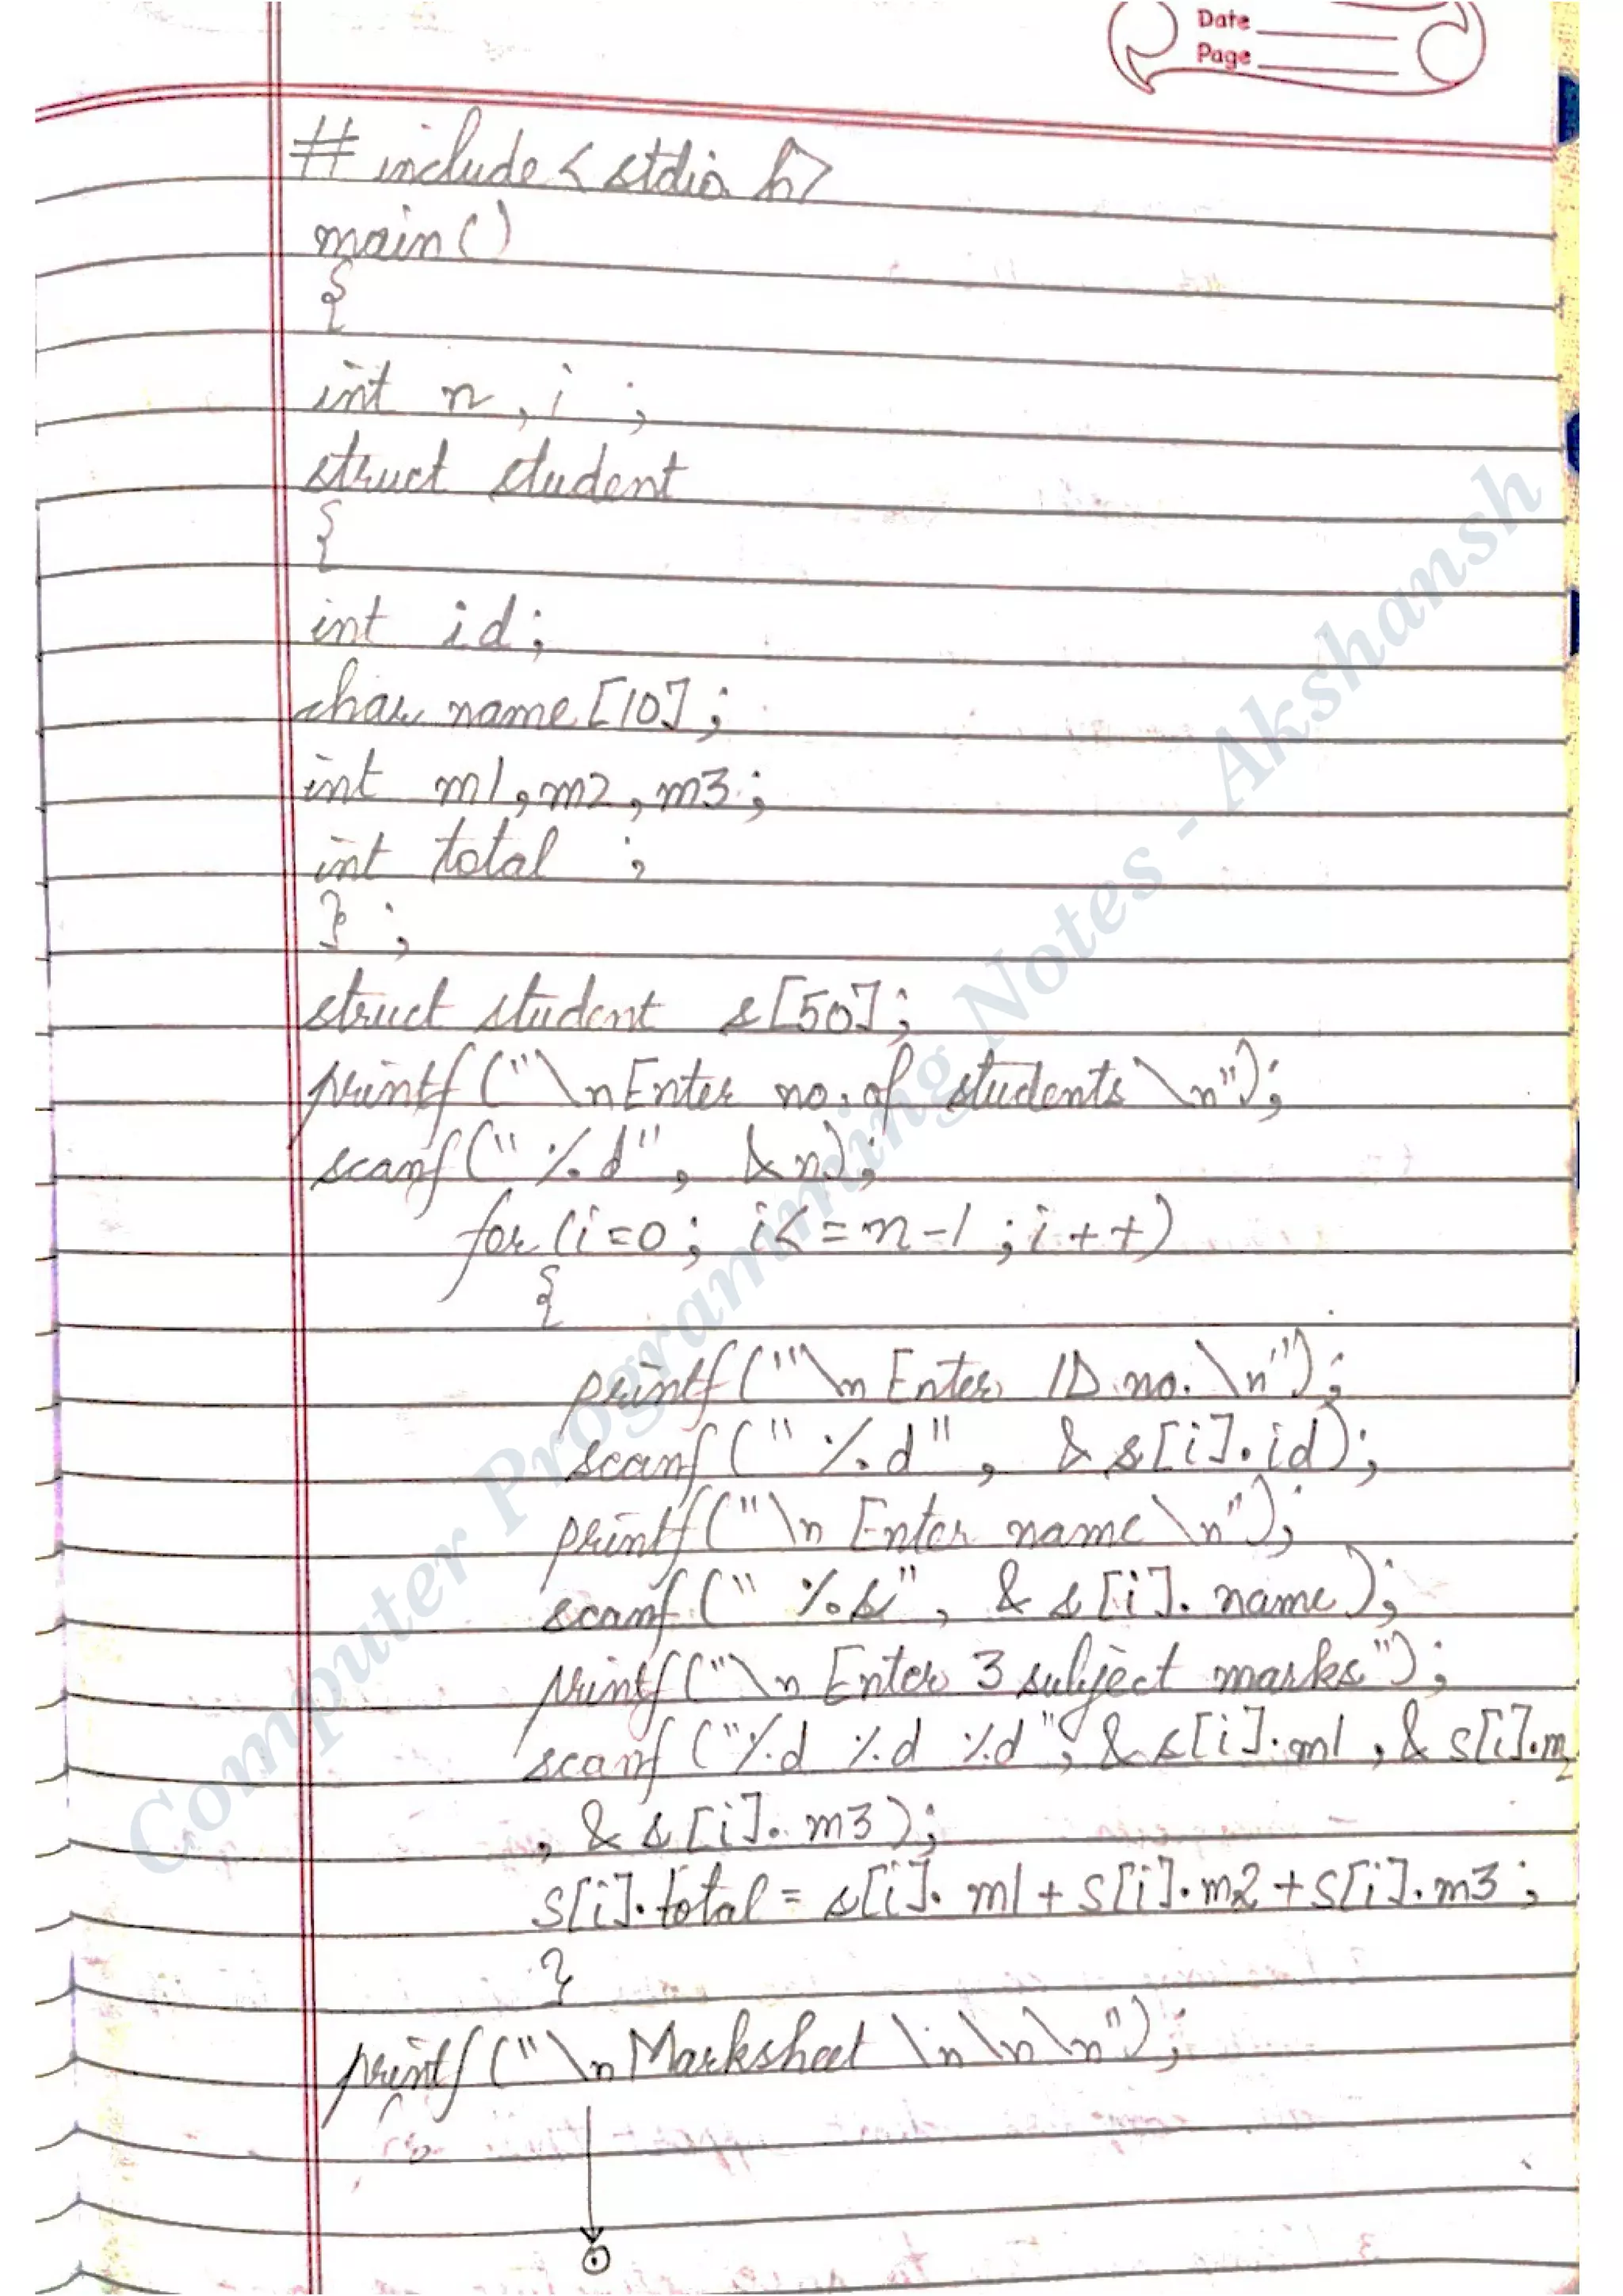 Date
Page
# include < stdio.h>
main()
{
int n, i ;
struct student
{
int id;
char name[10];
int m1, m2, m3;
int total ;
} ;
struct student s[50];
printf("\nEnter no. of students \n");
scanf("%d", &n);
for(i=0; i<=n-1; i++)
{
printf("\n Enter ID no. \n");
scanf("%d", & s[i].id);
printf("\n Enter name \n");
scanf("%s", & s[i]. name);
printf("\n Enter 3 subject marks");
scanf("%d %d %d", & s[i].m1, & s[i].m2
, & s[i]. m3);
s[i].total = s[i]. m1 + s[i].m2 + s[i].m3 ;
}
printf("\nMarksheet \n\n\n");
Computer Programming Notes - Akshansh